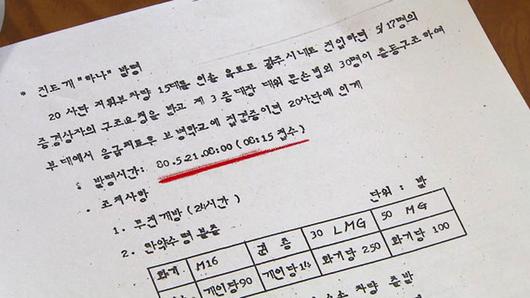 * 진도개 "하나" 발령
20 사단 지휘부 차량 15대를 인솔 유도로 광주 시내로 진입하면 5/17명의
중경상자의 구조요청을 받고 제 3 중대장 대위 문손법외 30명이 출동구조하여
부대에서 응급치료후 보병학교에 집결중이던 20사단에 인계
: 발령시간: 80.5.21.08:00 (08:15 접수)
· 조치사항
1. 무전개방 (24시간)
2. 탄약수령 분출
단위 : 발
화기 M16 권총 30 LMG 50 MG
개인당90 개인당14 화기당 250 화기당 100
차량 출발